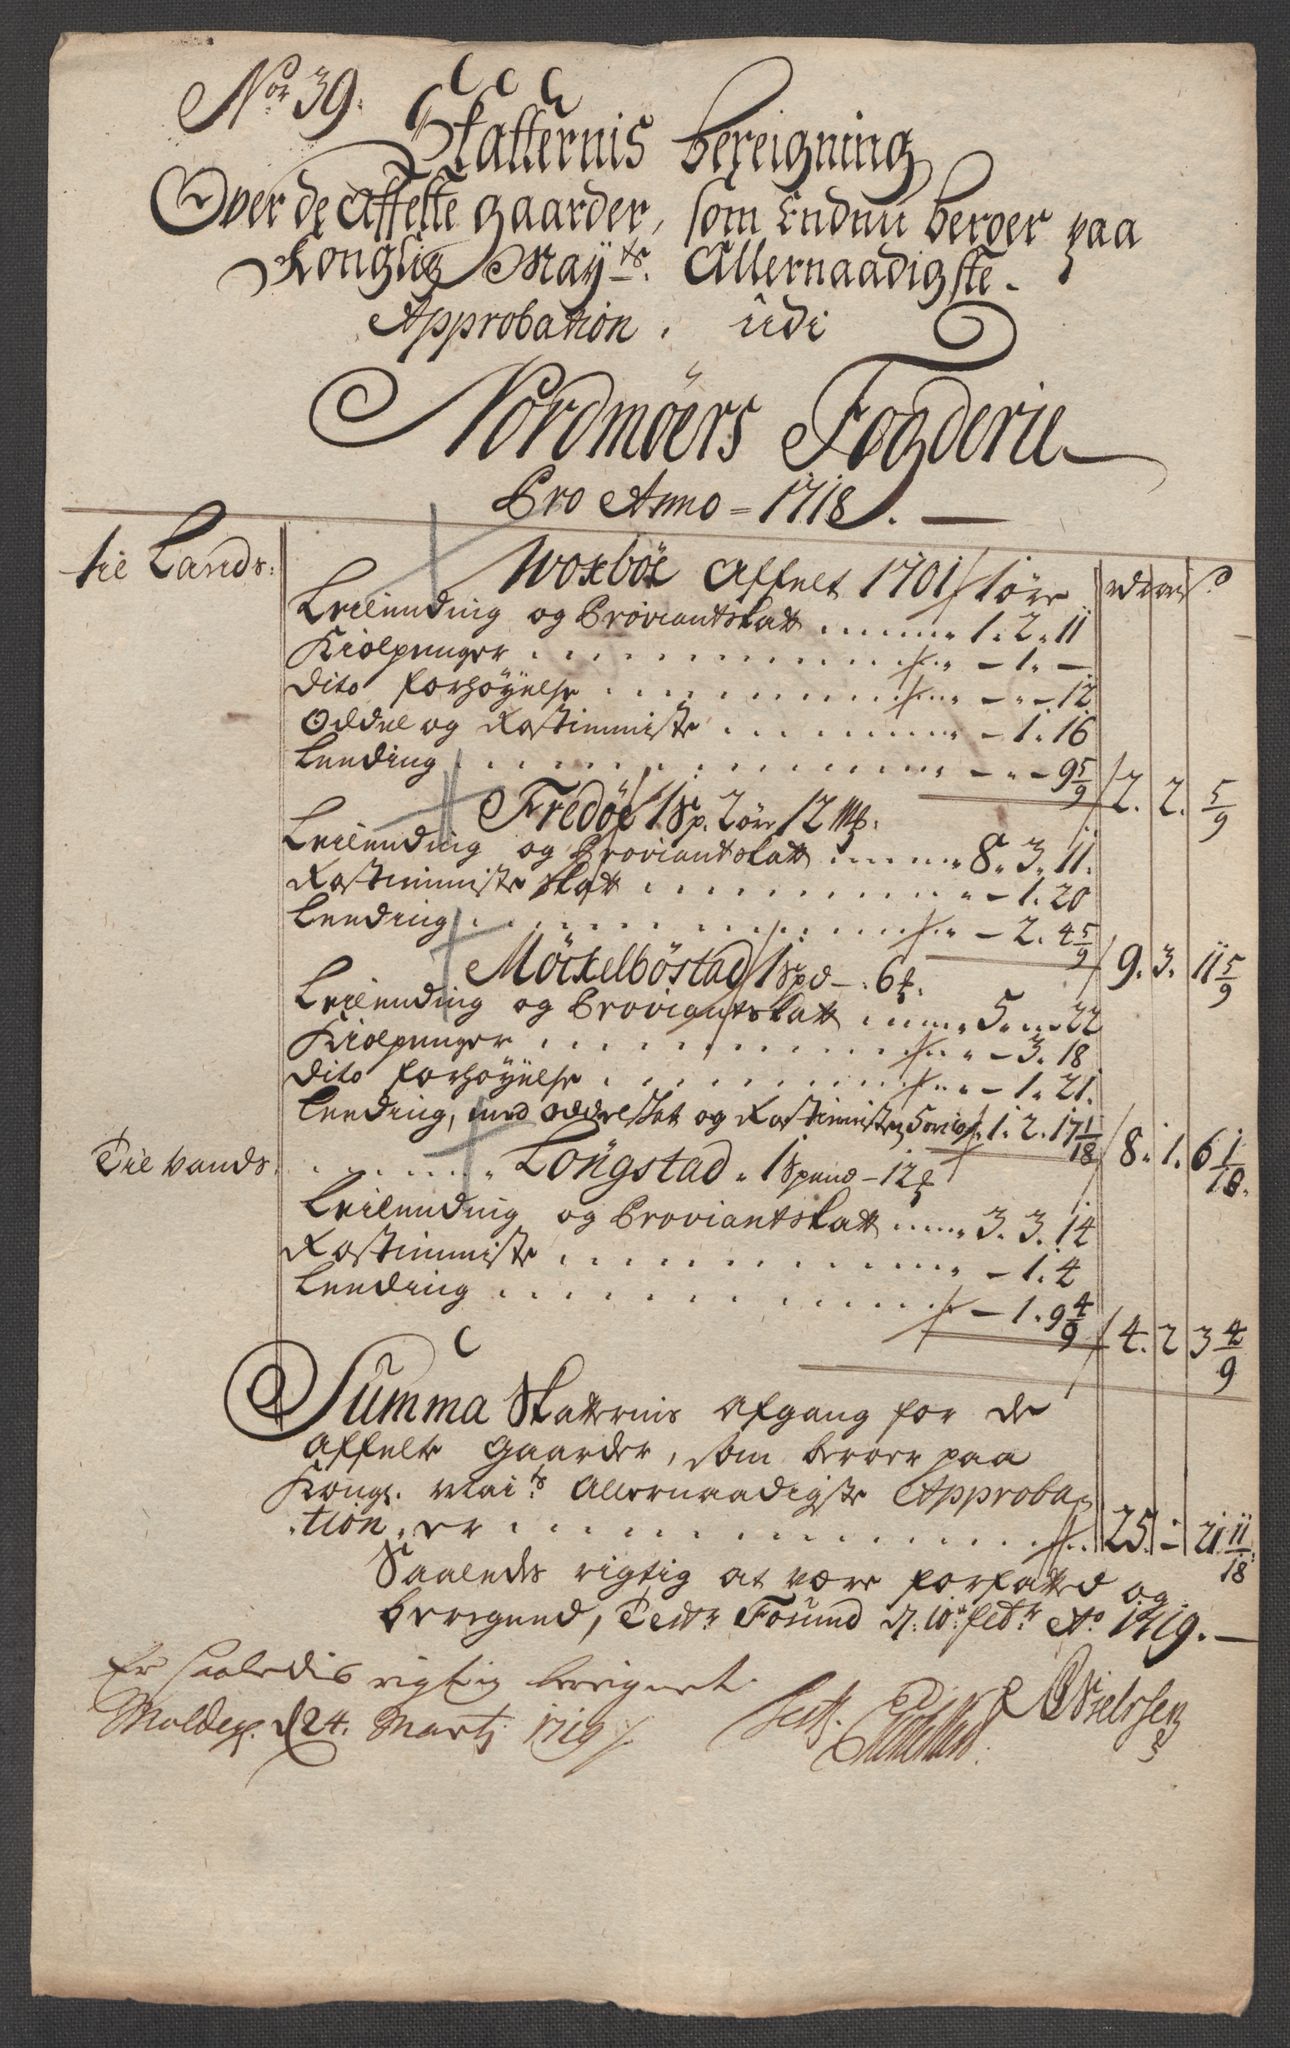 Nor 39.
Skatternis bereigning
Over de affelte gaarder, som Endnu beroer paa
Konglig Mayts. Allernaadigste
Approbation. udi
Nordmøers Fogderie
Pro Anno = 1718.
til Lands: Woxbøe affelt 1701 / 1 øre
Leilending og Proviantskatt ...... 1. 2. 11
Kiølpenger ...... - 1. -
dito forhøyelse ...... - - 12
Oddel og Rostienniste ...... - 1. 16
Leeding ...... - - 9 5/9 / 2. 2. 5/9
Fredøe / 1 Sp. 2 øre 12 mk:
Leilending og Proviantskatt ...... 8. 3. 11.
Rostienniste skatt ...... - 1. 20
Leeding ...... - 2. 4 5/9 / 9. 3. 11 5/9
Möckelböstad / 1 Spd - 6 .
Leilending og Proviantskatt ...... 5. - 22
Kiølpenger ...... - 3. 18
dito forhøyelse ...... - 1. 21.
Leeding, med oddelskat og Rostienniste 1. 2. 17 1/18 / 8. 1. 6 1/18.
Til vands. ...... Longstad. 1 Spand - 12
Leilending og Proviantskatt ...... 3. 3. 14
Rostienniste ...... - 1. 4
Leeding ...... - 1. 9 4/9 / 4. 2 3 4/9
Summa Skatternis afgang for de
affelte gaarder, som beroer paa
Kongl. Maits. allernaadigste Approba-
tion, er ...... 25. - 21 11/18
Saaledes rigtig at være forfatted og
beregned, Test. Fosund d. 10. febr. Ao 1719.
Er saaledis rigtig beregnet.
Molde d 24. Martj 1719 /. Test. Nielssen